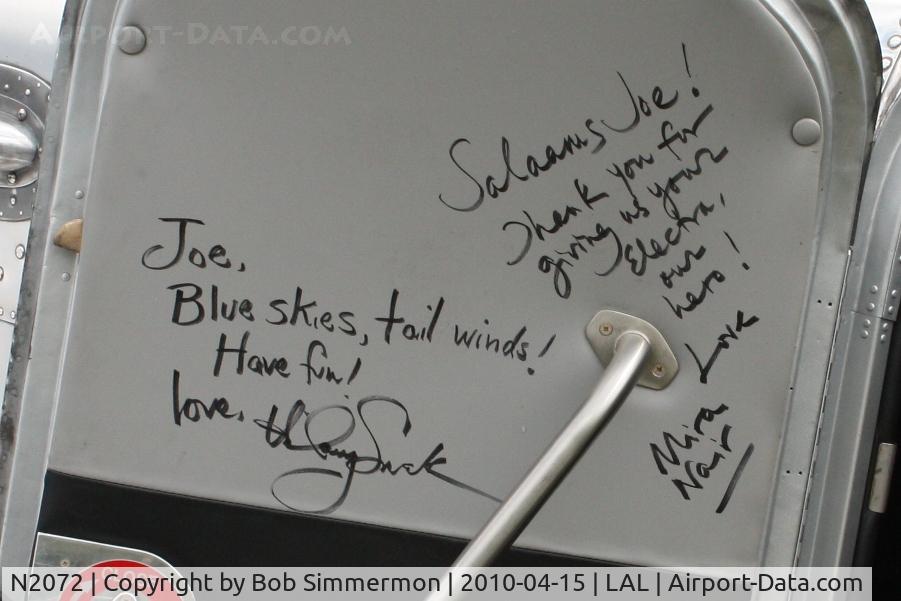 Airport-Data.com
Salaams Joe!
Thank you for
giving us your
Electra,
our
hero!
Love
Mira
Nair
Joe,
Blue skies, tail winds!
Have fun!
love,
Hilary Swank
N2072 | Copyright by Bob Simmermon | 2010-04-15 | LAL | Airport-Data.com